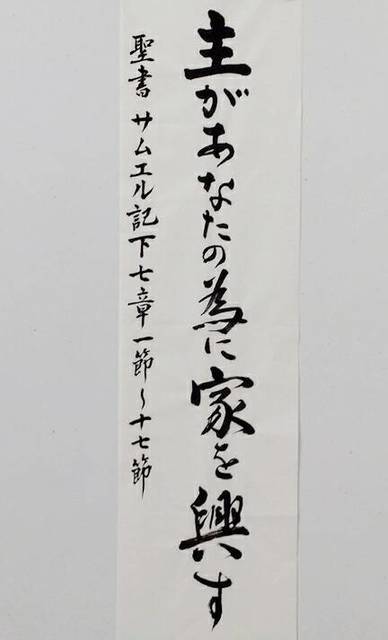 主があなたの為に家を興す
聖書 サムエル記下七章一節〜十七節